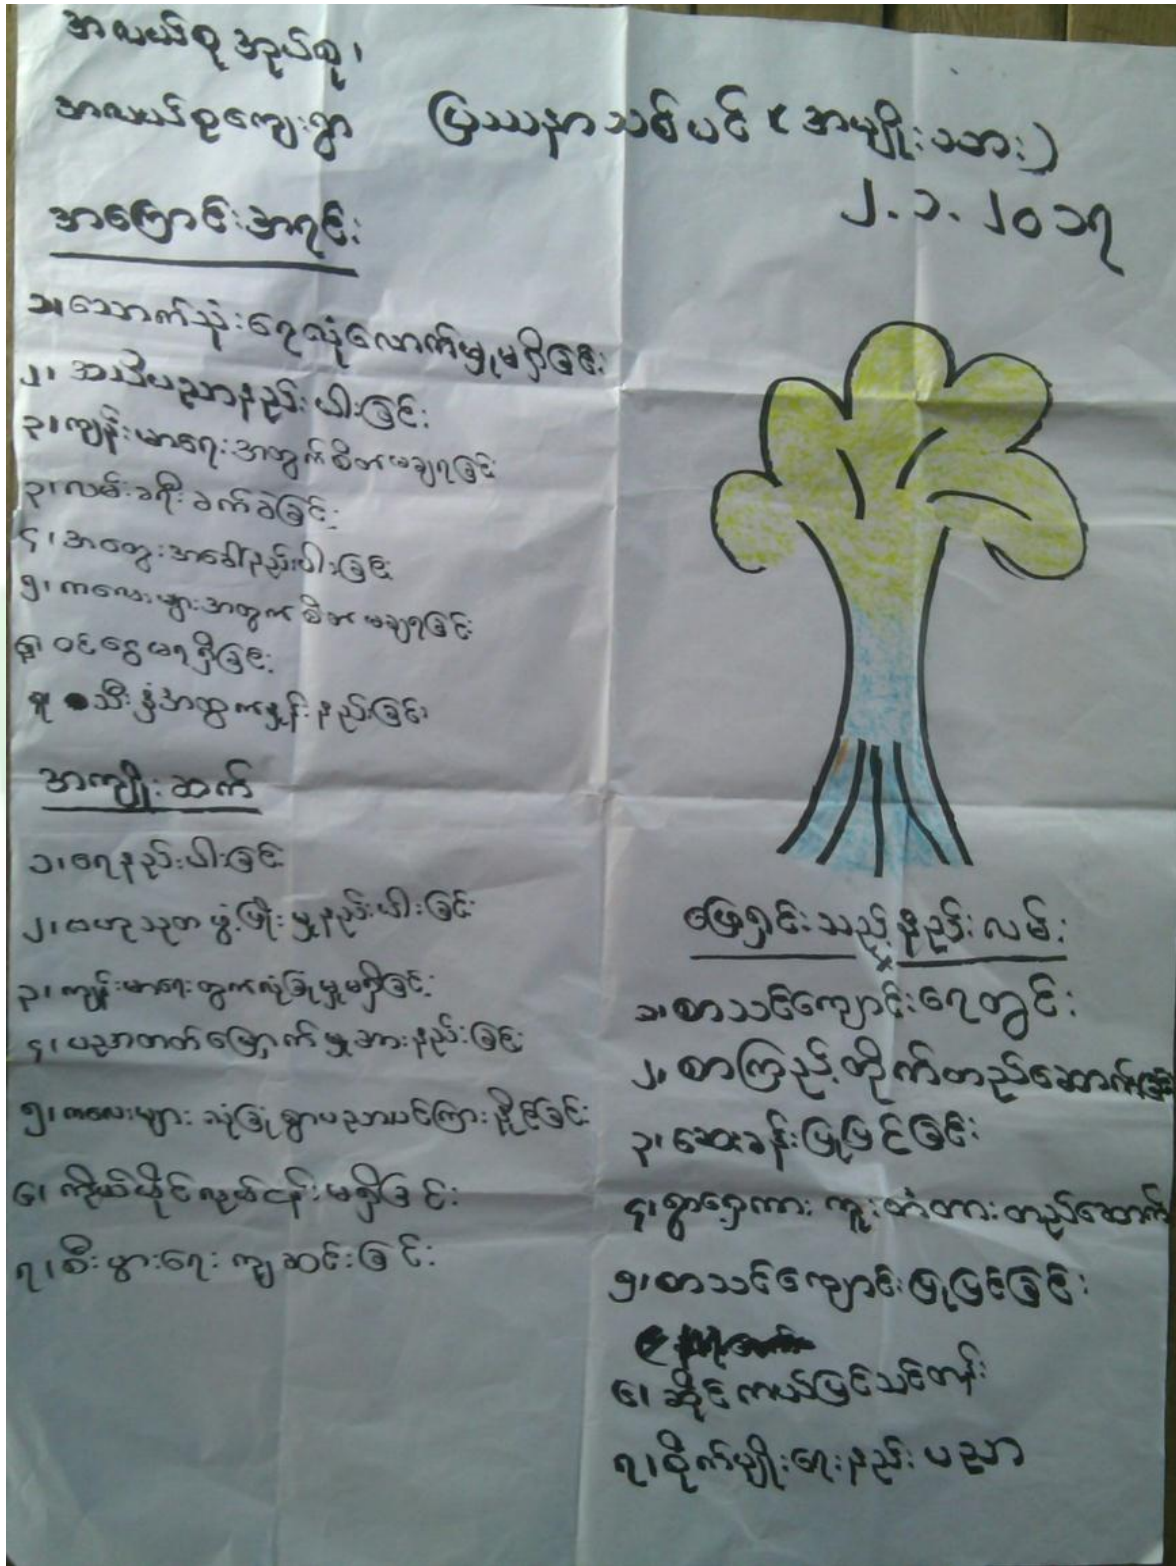 အလယ်စု အုပ်စု၊
အလယ်စုကျေးရွာ
ပြဿနာသစ်ပင် (အမျိုးသား)
၂.၁.၂၀၁၇
အကြောင်းအရင်း
၁၊ သောက်သုံးရေလုံလောက်မှုမရှိခြင်း
၂၊ အသိပညာနည်းပါးခြင်း
၃၊ ကျန်းမာရေးအတွက်စိတ်မချရခြင်း
၃၊ လမ်းခရီးခက်ခဲခြင်း
၄၊ အတွေးအခေါ်နည်းပါးခြင်း
၅၊ ကလေးများအတွက်စိတ်မချရခြင်း
ဝင်ငွေမရရှိခြင်း
သီးနှံအထွက်နှုန်းနည်းခြင်း
အကျိုးဆက်
၁၊ ရေနည်းပါးခြင်း
၂၊ ဗဟုသုတဖွံ့ဖြိုးမှုနည်းပါးခြင်း
၃၊ ကျန်းမာရေးတွက်လုံခြုံမှုမရှိခြင်း
၄၊ ပညာတတ်မြောက်မှုအားနည်းခြင်း
၅၊ ကလေးများ လုံခြုံစွာပညာသင်ကြားနိုင်ခြင်း
၆၊ ကိုယ်ပိုင်လုပ်ငန်းမရှိခြင်း
၇၊ စီးပွားရေး ကျဆင်းခြင်း
ဖြေရှင်းသည့်နည်းလမ်း
၁၊ စာသင်ကျောင်းရေတွင်း
၂၊ စာကြည့်တိုက်တည်ဆောက်ခြင်း
၃၊ ဆေးခန်းပြုပြင်ခြင်း
၄၊ ရွာရှေ့ကား ကူးတံတားတည်ဆောက်
၅၊ စာသင်ကျောင်းပြုပြင်ခြင်း
၆၊ ဆိုင်ကယ်ပြင်သင်တန်း
၇၊ စိုက်ပျိုးရေးနည်းပညာ